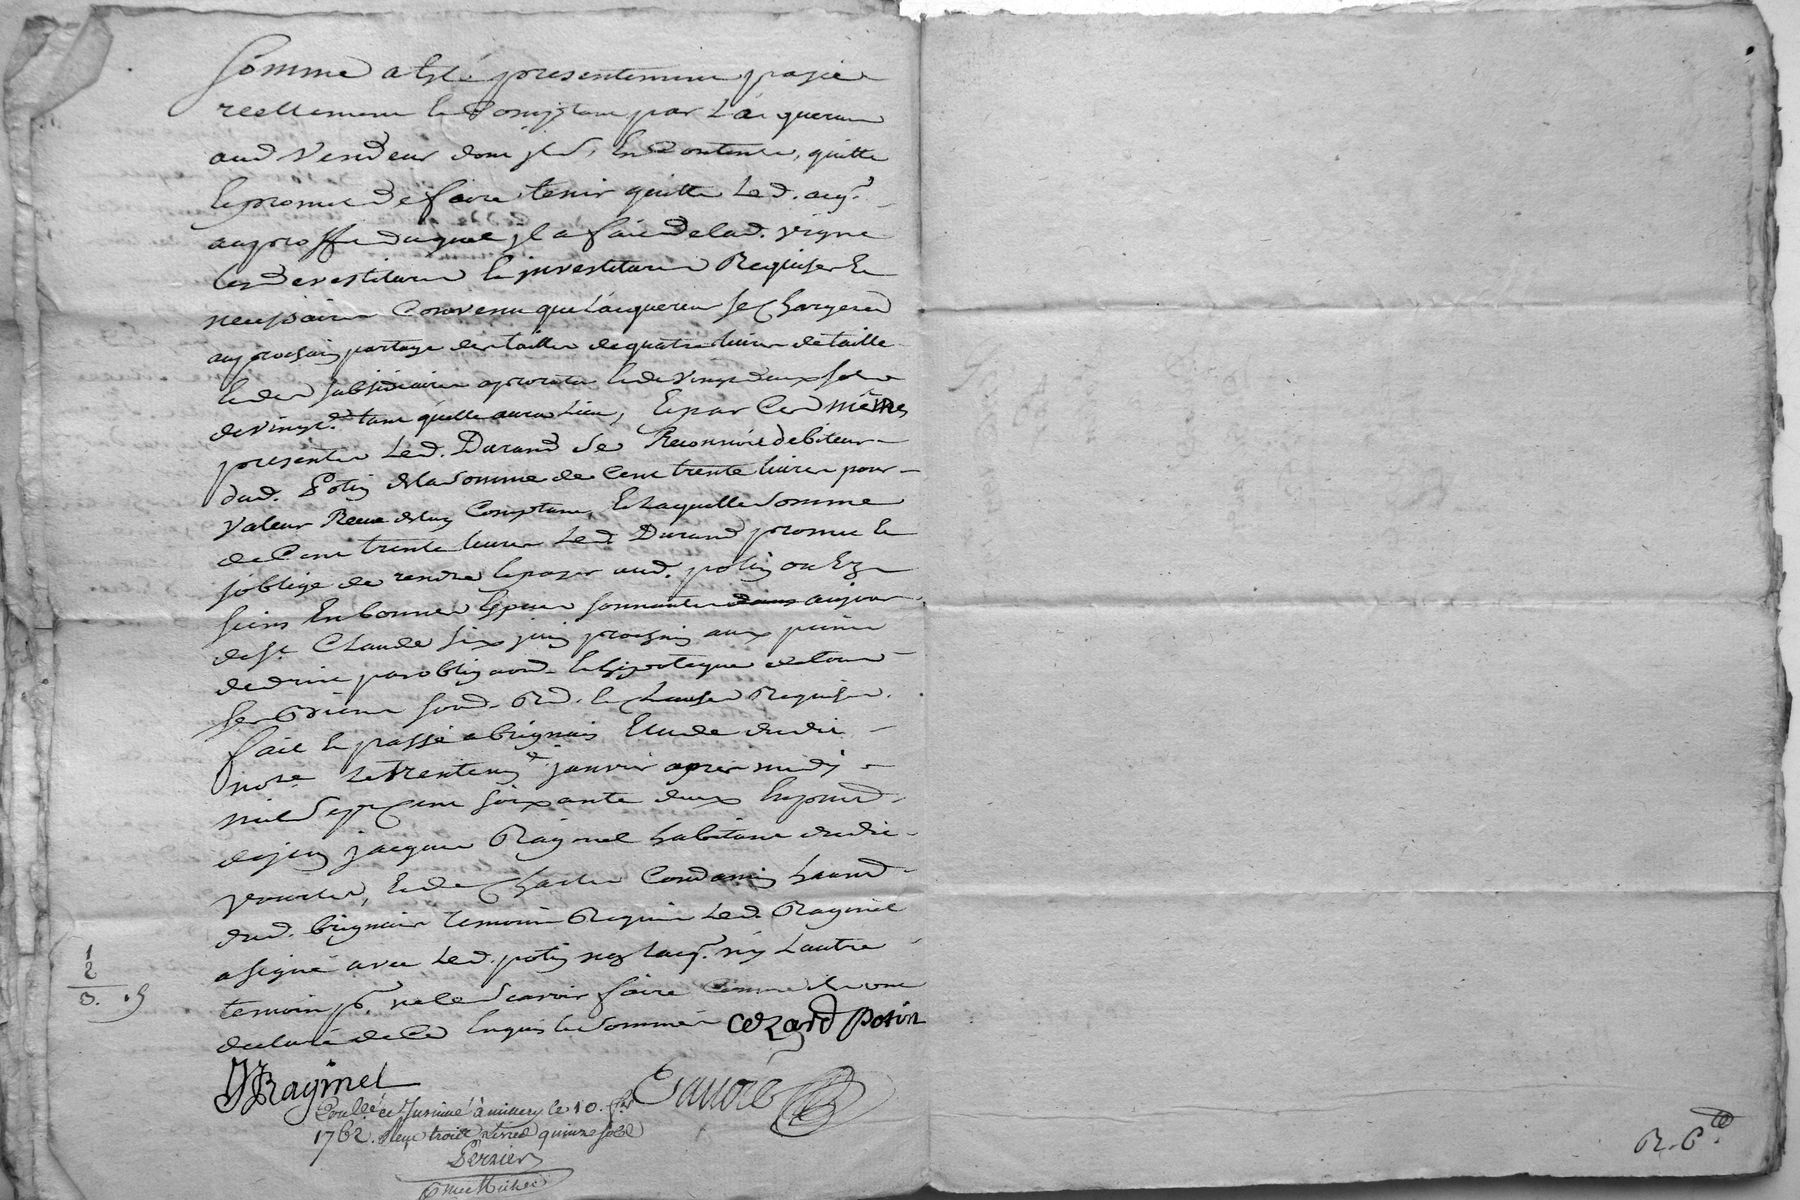 somme a esté presentement payée
reellement et comptant par l'acquereur
aud vendeur dont il s'en contente, quitte
et promet de faire tenir quitte led. acqr
au proffit duquel il a fait de lad. vigne
les devestiture et investiture requises et
necessaires Convenu que l'acquereur se chargera
au prochain partage des tailles de quatre livres de taille
et des subsidiaires aprorata et de vingt deux sols
de vingt.e tant quelle aura lieu, et par Ces mêmes
presentes Led. Durand se Reconnoit debiteur
dud. Potin de la somme de Cent trente livres pour
valeur Receue de luy Comptant, et Laquelle somme
de Cent trente livres Led Durand promet et
s'oblige de rendre et payer aud. potin ou Ez
siens En bonnes Especes sonnantes aujour
de St Claude six juin prochain aux peines
de droit par obligaon. et hipoteque de tous
ses Biens soub. Rd. et clauses Requises.
fait et passé a brignais Etude dudit
nore le trente un janvier apres midy
mil sept Cent soixante deux En pnce
de jacques Raymel habitant dudit
vourles, et de Charles Condamin habitt
dud. brignais temoins Requis Led. Raymel
a signé avec Led. potin non lacqr. ny Lautre
temoin pr. ne le scavoir faire Comme ils ont
declaré de Ce Enquis et sommés Cezard Potin
JRaymel
Controllé et Insinué à millery le 10. fer
1762. Reçu trois livres quinze sols
1
2
3. .9
R. Cte